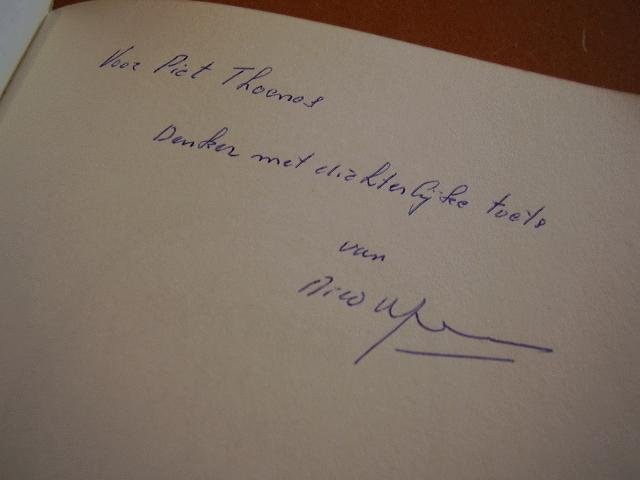 Voor Piet Thoenes
Denker met dichterlijke toets
van
Nico